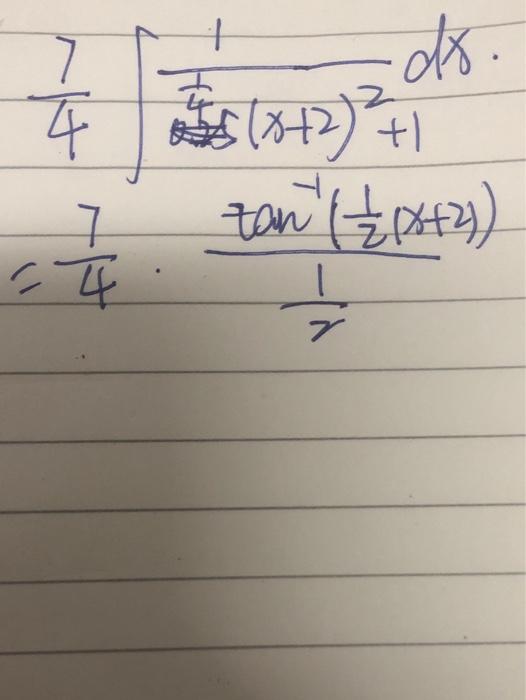 7/4 ∫ 1/(1/4 (x+2)² + 1) dx.
= 7/4 · tan⁻¹(1/2 (x+2)) / (1/2)